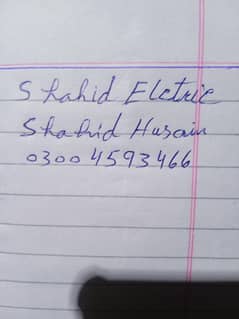 Shahid Elctric
Shahid Husain
0300 4593466